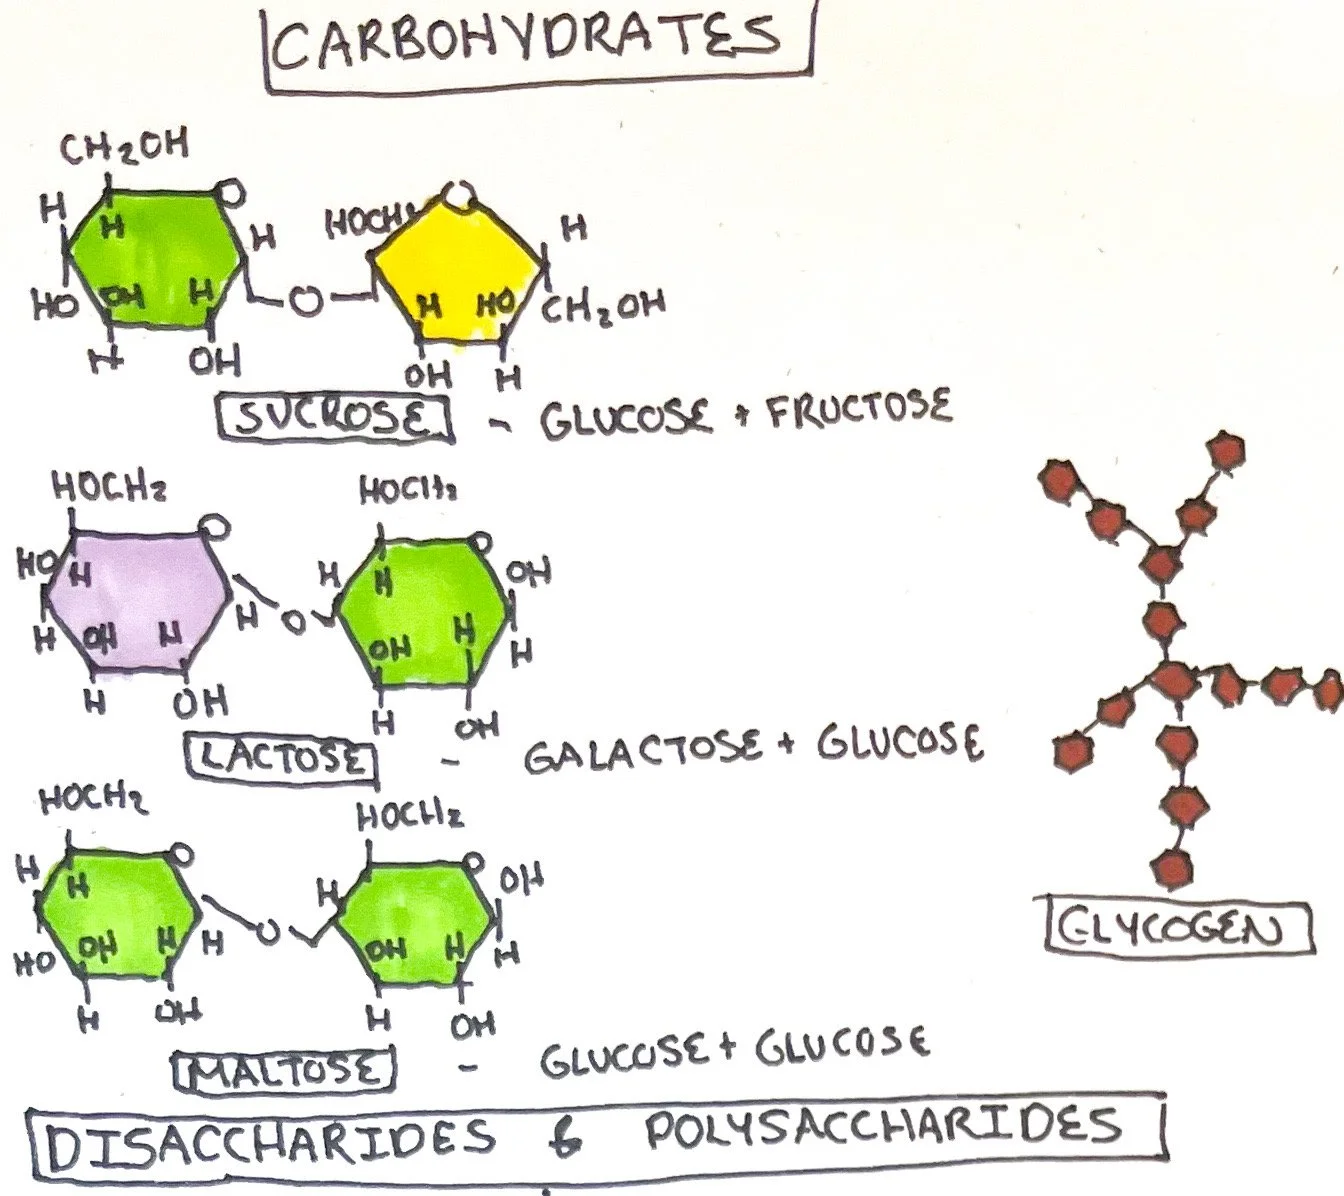 CARBOHYDRATES
CH2OH
H
O
H
H
HOCH
O
H
HO
OH
H
O
H
HO
CH2OH
H
OH
OH
H
SUCROSE - GLUCOSE + FRUCTOSE
HOCH2
HOCH2
O
O
HO
H
H
H
OH
H
OH
H
H
O
OH
H
H
H
OH
H
OH
LACTOSE - GALACTOSE + GLUCOSE
HOCH2
HOCH2
O
O
H
H
H
OH
HO
OH
H
H
O
OH
H
H
H
OH
H
OH
GLYCOGEN
MALTOSE - GLUCOSE + GLUCOSE
DISACCHARIDES & POLYSACCHARIDES